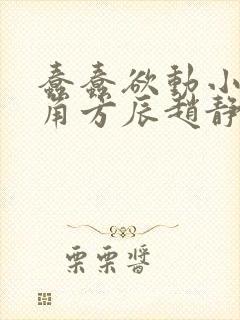 蠢蠢欲動小
角方辰趙靜
栗栗醬